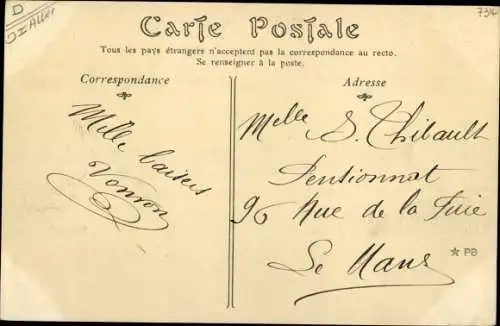 D
I Allier
7314
Carte Postale
Tous les pays étrangers n'acceptent pas la correspondance au recto.
Se renseigner à la poste.
Correspondance
Adresse
Mille baisers
Vonvon
Melle S. Thibault
Pensionnat
96 Rue de la Furie
Le Mans
* PB